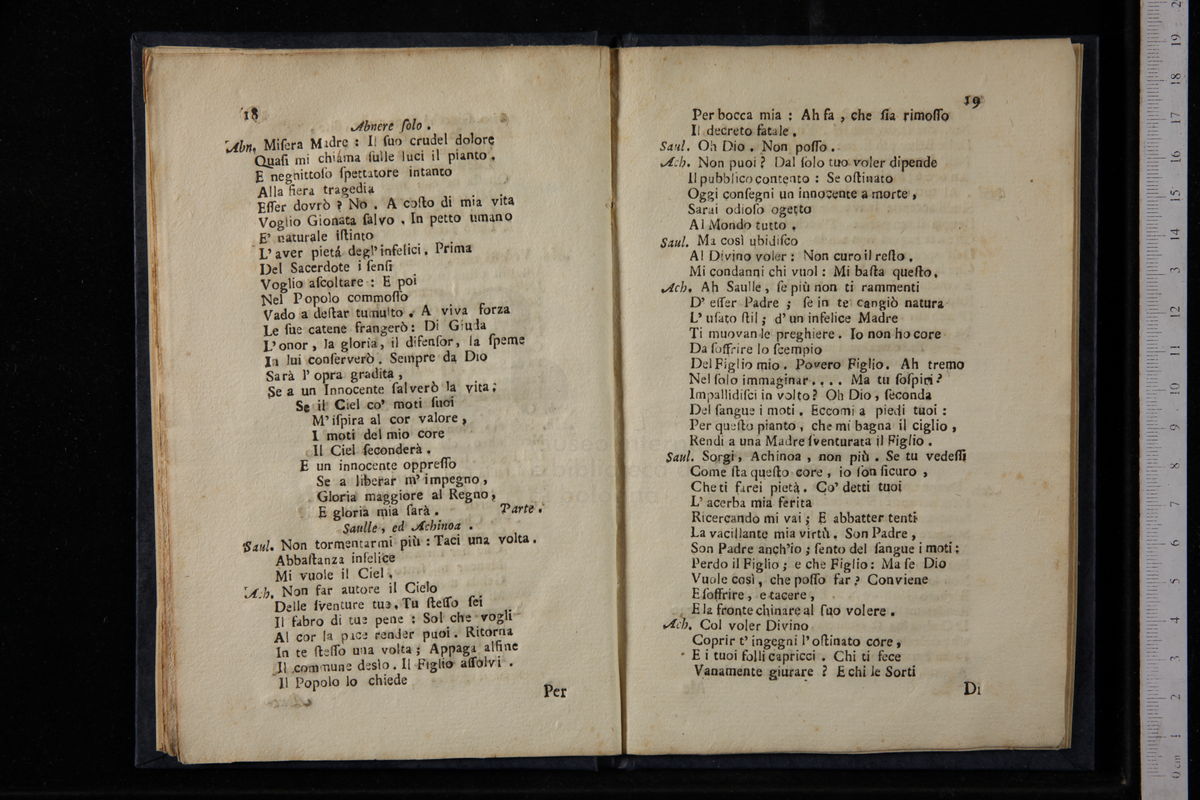 18
Abnere ſolo .
Abn. Miſera Madre : Il ſuo crudel dolore
Quaſi mi chiáma ſulle luci il pianto .
E neghittoſo ſpettatore intanto
Alla fiera tragedia
Eſſer dovrò ? No . A coſto di mia vita
Voglio Gionata ſalvo . In petto umano
E' naturale iſtinto
L' aver pietá degl' infelici . Prima
Del Sacerdote i ſenſi
Voglio aſcoltare : E poi
Nel Popolo commoſſo
Vado a deſtar tumulto . A viva forza
Le ſue catene frangerò : Di Giuda
L' onor , la gloria , il difenſor , la ſpeme
In lui conſerverò . Sempre da Dio
Sarà l' opra gradita ,
Se a un Innocente ſalverò la vita ;
Se il Ciel co' moti ſuoi
M' iſpira al cor valore ,
I moti del mio core
Il Ciel ſeconderà .
E un innocente oppreſſo
Se a liberar m' impegno ,
Gloria maggiore al Regno ,
E gloria mia ſarà . Parte .
Saulle , ed Achinoa .
Saul. Non tormentarmi più : Taci una volta .
Abbaſtanza infelice
Mi vuole il Ciel .
Ach. Non far autore il Cielo
Delle ſventure tue . Tu ſteſſo ſei
Il fabro di tue pene : Sol che vogli
Al cor la pace render puoi . Ritorna
In te ſteſſo una volta ; Appaga alfine
Il commune desìo . Il Figlio aſſolvi .
Il Popolo lo chiede
Per
19
Per bocca mia : Ah fa , che ſia rimoſſo
Il decreto fatale .
Saul. Oh Dio . Non poſſo .
Ach. Non puoi ? Dal ſolo tuo voler dipende
Il pubblico contento : Se oſtinato
Oggi conſegni un innocente a morte ,
Sarai odioſo ogetto
Al Mondo tutto .
Saul. Ma così ubidiſco
Al Divino voler : Non curo il reſto .
Mi condanni chi vuol : Mi baſta queſto .
Ach. Ah Saulle , ſe più non ti rammenti
D' eſſer Padre ; ſe in te cangiò natura
L' uſato ſtil ; d' un infelice Madre
Ti muovan le preghiere . Io non ho core
Da ſoffrire lo ſcempio
Del Figlio mio . Povero Figlio . Ah tremo
Nel ſolo immaginar . . . . Ma tu ſoſpiri ?
Impallidiſci in volto ? Oh Dio , ſeconda
Del ſangue i moti . Eccomi a piedi tuoi :
Per queſto pianto , che mi bagna il ciglio ,
Rendi a una Madre ſventurata il Figlio .
Saul. Sorgi , Achinoa , non più . Se tu vedeſſi
Come ſta queſto core , io ſon ſicuro ,
Che ti farei pietà . Co' detti tuoi
L' acerba mia ferita
Ricercando mi vai ; E abbatter tenti
La vacillante mia virtù . Son Padre ,
Son Padre anch' io ; ſento del ſangue i moti :
Perdo il Figlio ; e che Figlio : Ma ſe Dio
Vuole così , che poſſo far ? Conviene
E ſoffrire , e tacere ,
E la fronte chinare al ſuo volere .
Ach. Col voler Divino
Coprir t' ingegni l' oſtinato core ,
E i tuoi folli capricci . Chi ti fece
Vanamente giurare ? E chi le Sorti
Di